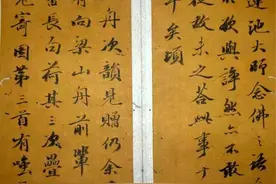 蓮池大師念佛之
欲與諍然亦不敢
故未之荅此事
年矣頃
舟次韻見贈仍余
有向梁山舟前輩
長句荷其三次疊
寄園第三首有